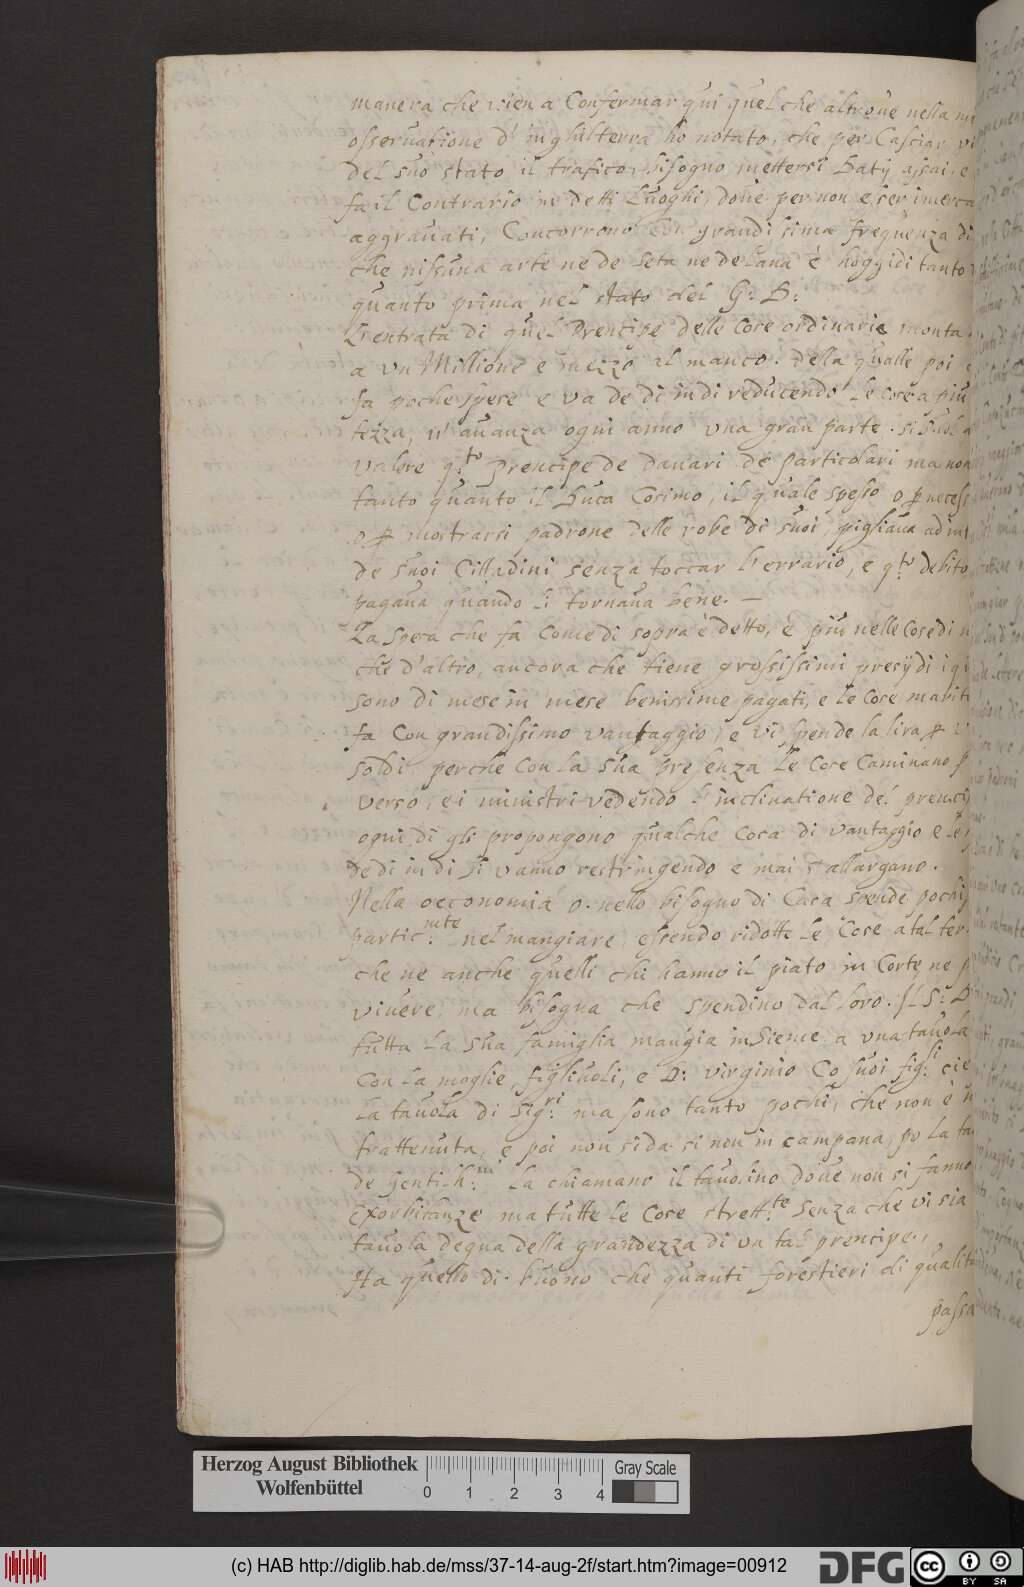 manera che vien a Confermar qui quel che altroue nella mi
osseruatione d' inghilterra hò notato, che per Casciar vi
del suo stato il trafico, bisogno mettersi Datij assai, e
fa il Contrario in detti Luoghi, doue per non esser i merca
aggrauati, Concorrono con grandissima frequenza di
che nissuna arte ne de seta ne de lana è hoggidì tanto
quanto prima nel stato del G: D:
L'entrata di quel Prencipe delle Cose ordinarie monta
a vn Millione e mezzo al manco. della qualle poi
fa poche spese e va de dì in dì reducendo le Cose a più
tezza, n' auanza ogni anno vna gran parte. si suol
valere q:to prencipe de danari de particolari ma non
tanto quanto il Duca Cosimo, il quale spesso o p necess
o p mostrarsi padrone delle robe di suoi, pigliaua ad int
de suoi Cittadini senza toccar l'errario, e q:to debito
pagaua quando li tornaua bene. —
La Spesa che fa Come di sopra è detto, è più nelle Cose di
che d'altro, ancora che tiene grossissimi presijdi i qi
sono di mese in mese benissime pagati, e le Cose marit
fa Con grandissimo vantaggio, e vi spende la lira p
soldi perche Con la sua presenza le Cose Caminano p
verso, e i ministri vedendo l' inclinatione del prenci
ogni dì gli propongono qualche Cosa di vantaggio e le
de dì in dì si vanno restringendo e mai s'allargano.
Nella oeconomia o. nello bisogno di Casa spende pochi
partic:mte nel mangiare essendo ridotte le Cose a tal ter
che ne anche quelli chi hanno il piato in Corte ne p
viuere, ma bisogna che spendino dal loro. Il S: D
tutta la sua famiglia mangia insieme a vna tauola
Con la moglie, figliuoli, e D: virginio Co suoi fig:li cie
La tauola di Sig:ri ma sono tanto pochi, che non è
trattenuta, e poi non si da si non in campana, po la ta
de gentilh:ni La chiamano il tauolino doue non si fanno
exorbitanze, ma tutte le Cose strett:te senza che vi sia
tauola degna della grandezza di vn tal prencipe.,
Ha quello di buono che quanti forestieri di qualità
passa
Herzog August Bibliothek
Wolfenbüttel
0 1 2 3 4
Gray Scale
(c) HAB http://diglib.hab.de/mss/37-14-aug-2f/start.htm?image=00912
DFG
cc BY SA